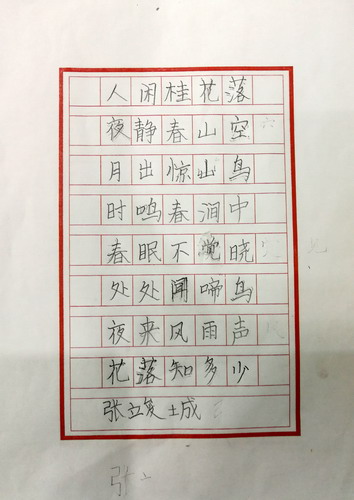 人闲桂花落
夜静春山空
月出惊山鸟
时鸣春涧中
春眠不觉晓
处处闻啼鸟
夜来风雨声
花落知多少
张立
城